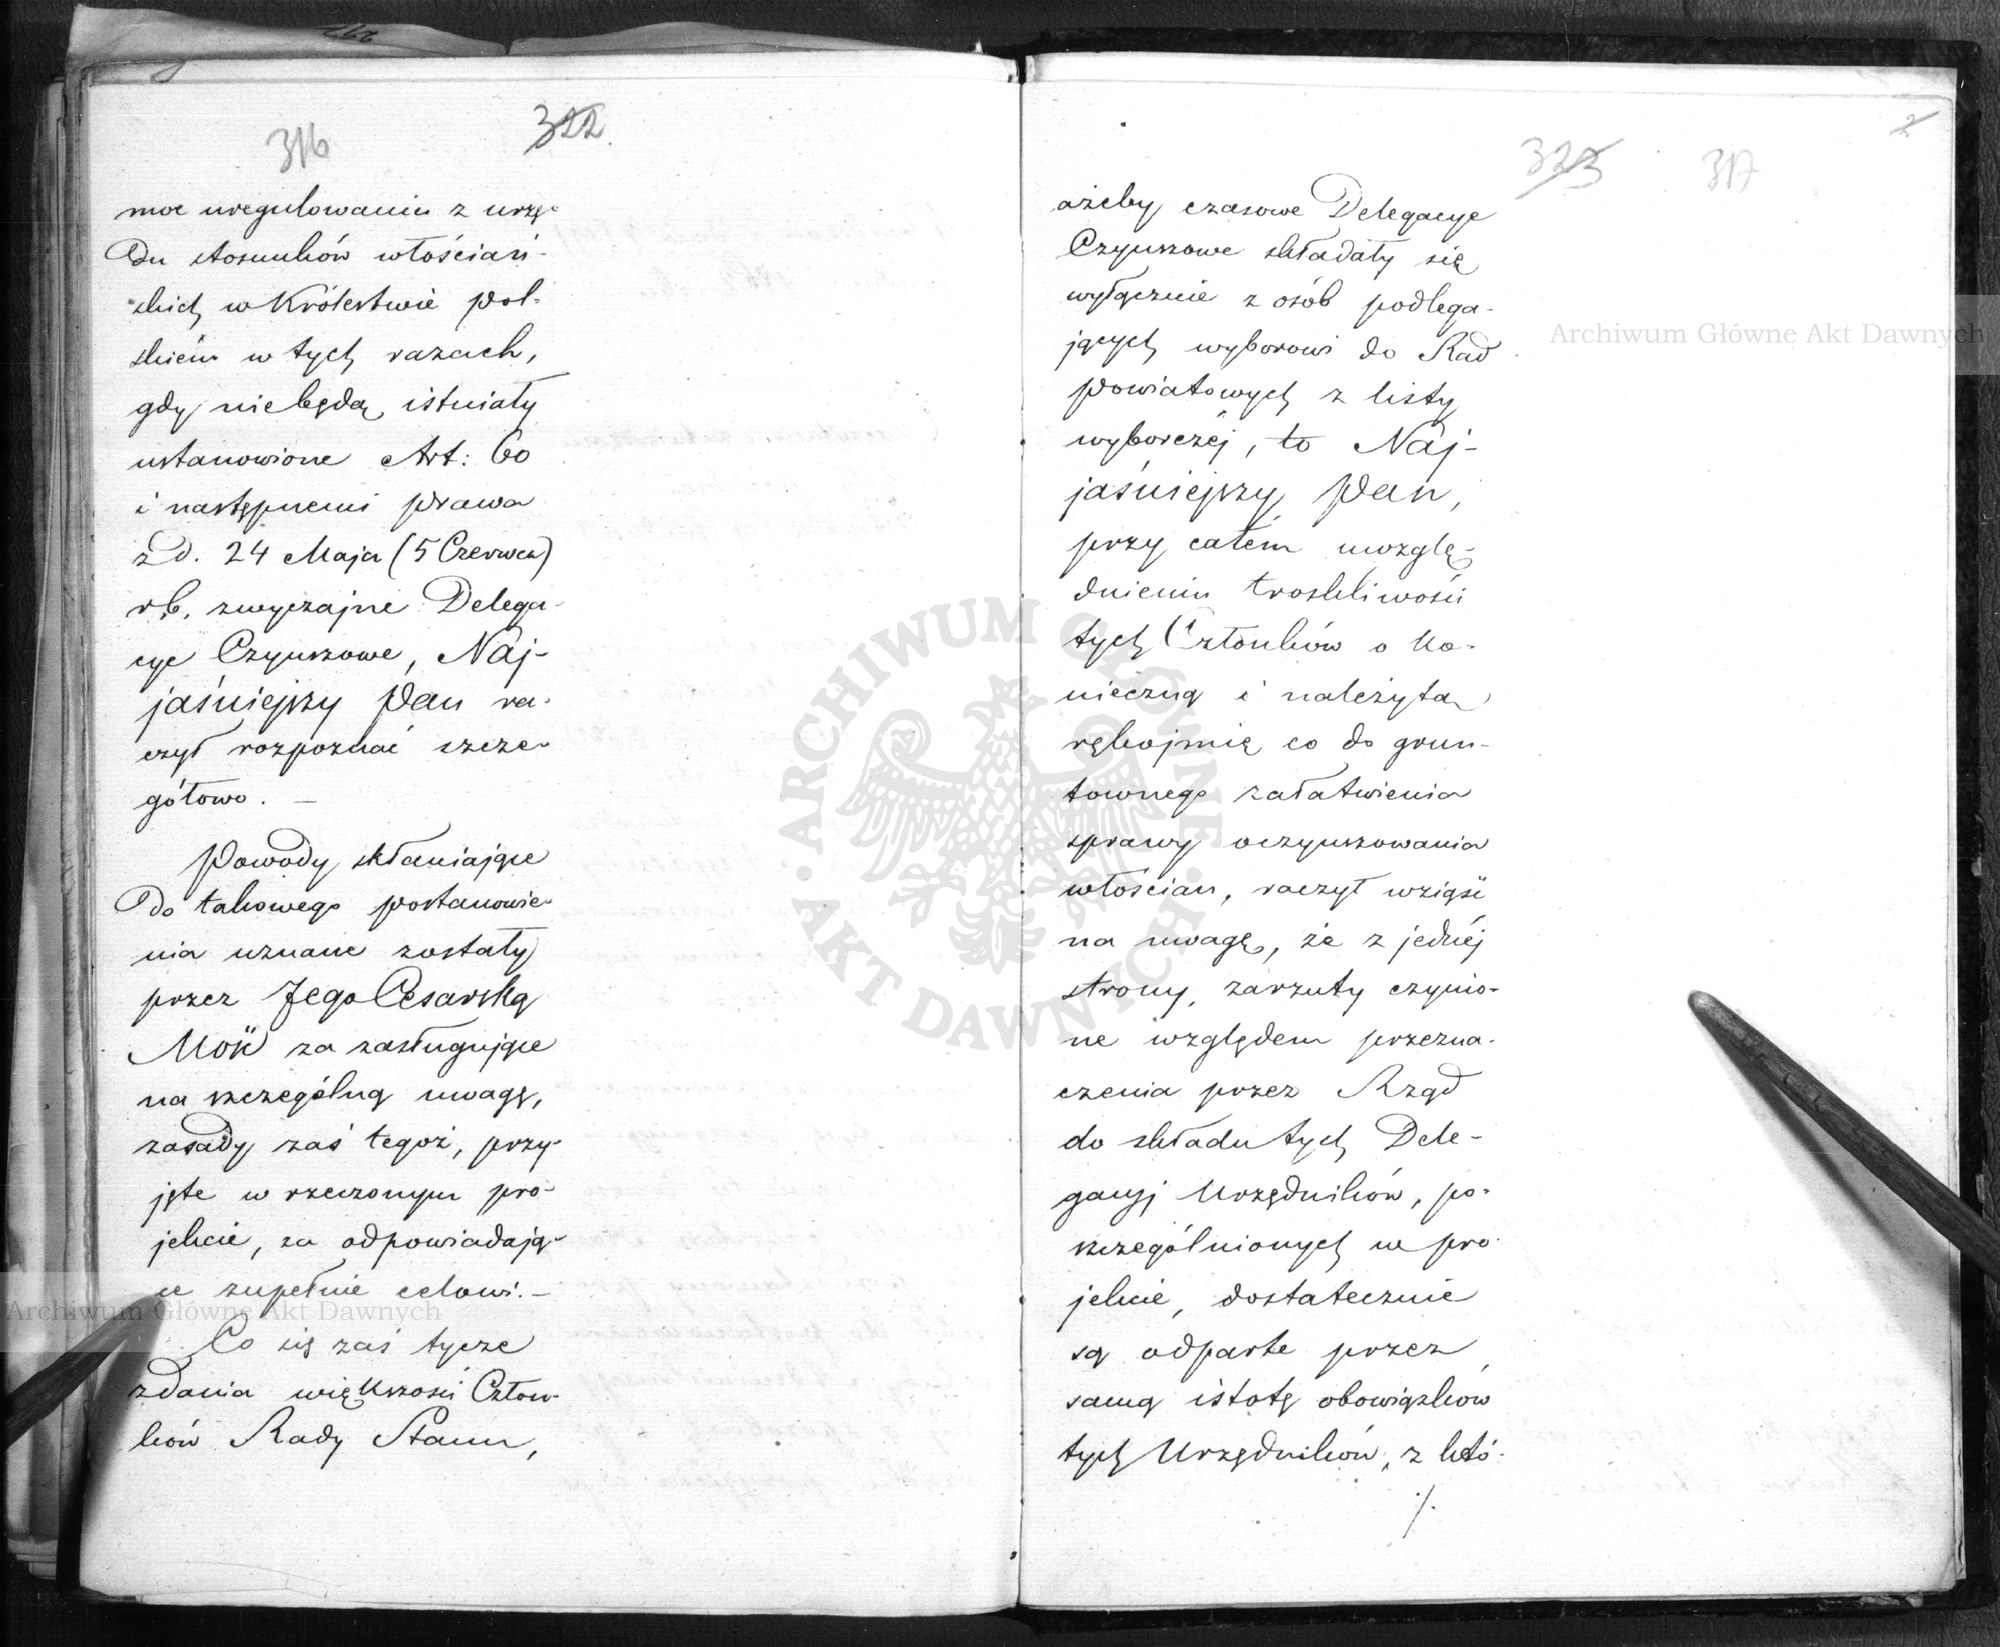 316
322.
moc uregulowaniu z urzę-
du stosunków włościań-
skich w Królestwie Pol-
skiém w tych razach,
gdy nie będą istniały
ustanowione Art: 60
i następnemi prawa
z d. 24 Maja (5 Czerwca)
r b. zwyczajne Delega-
cye Czynszowe, Naj-
jaśniejszy Pan ra-
czył rozpoznać szcze-
gółowo. —
Powody skłaniające
do takowego postanowie-
nia uznane zostały
przez Jego Cesarską
Mość za zasługujące
na szczególną uwagę,
zasady zaś tegoż, przy-
jęte w rzeczonym pro-
jekcie, za odpowiadają-
ce zupełnie celowi. —
Co się zaś tycze
zdania większości Człon-
ków Rady Stanu,
2
323
317
ażeby czasowe Delegacye
Czynszowe składały się
wyłącznie z osób podlega-
jących wyborowi do Rad
Powiatowych z listy
wyborczéj, to Naj-
jaśniejszy Pan,
przy całém uwzglę-
dnieniu troskliwości
tych Członków o ko-
nieczną i należytą
rękojmię co do grun-
townego załatwienia
sprawy oczynszowania
włościan, raczył wziąść
na uwagę, że z jednéj
strony, zarzuty czynio-
ne względem przezna-
czenia przez Rząd
do składu tych Dele-
gacyj Urzędników, po-
szczególnionych w pro-
jekcie, dostatecznie
są odparte przez
samą istotę obowiązków
tych Urzędników, z któ-
./.
Archiwum Główne Akt Dawnych
Archiwum Główne Akt Dawnych
ARCHIWUM GŁÓWNE · AKT DAWNYCH ·